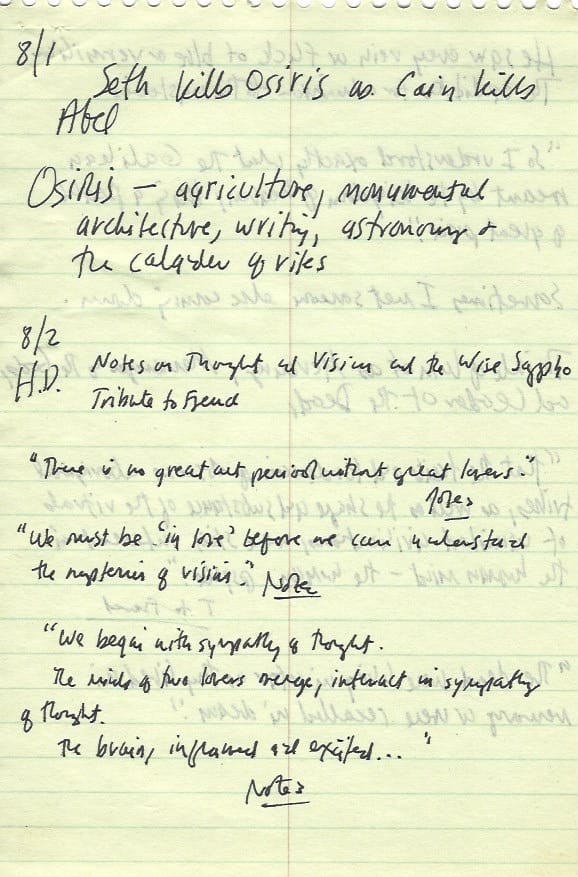 8/1
Seth kills Osiris as Cain kills
Abel
Osiris — agriculture, monumental
architecture, writing, astronomy &
the calander of rites
8/2
H.D. Notes on Thought and Vision and the Wise Sappho
Tribute to Freud
"There is no great art period without great lovers."
Notes
"We must be 'in love' before we can understand
the mysteries of vision" Notes
"We begin with sympathy of thought.
The minds of two lovers merge, interact in sympathy
of thought.
The brain, inflamed and excited..."
Notes